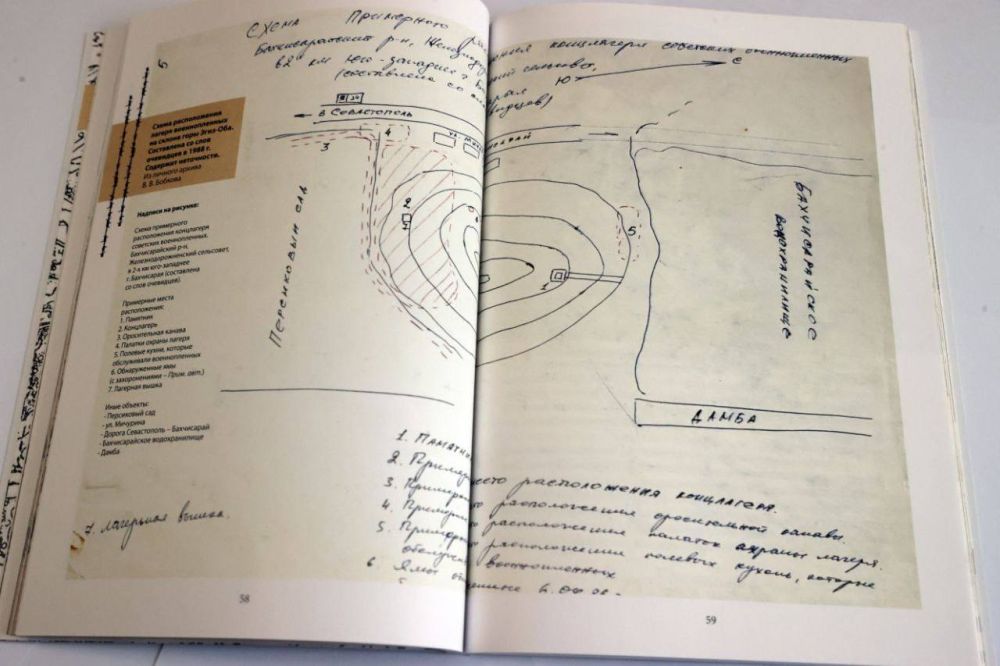 Схема Примерного
Бахчисарайский р-н,
(составлена со
концлагеря советских военнопленных
сельсовет,
Ю
С
5
Схема расположения
лагеря военнопленных
на склоне горы Эгиз-Оба.
Составлена со слов
очевидцев в 1988 г.
Содержит неточности.
Из личного архива
В. В. Бобкова
Надписи на рисунке:
Схема примерного
расположения концлагеря
советских военнопленных.
Бахчисарайский р-н,
Железнодорожненский сельсовет,
в 2-х км юго-западнее
г. Бахчисарая (составлена
со слов очевидцев).
Примерные места
расположения:
1. Памятник
2. Концлагерь
3. Оросительная канава
4. Палатки охраны лагеря
5. Полевые кухни, которые
обслуживали военнопленных
6. Обнаруженные ямы
(с захоронениями – Прим. авт.)
7. Лагерная вышка
Иные объекты:
- Персиковый сад
- ул. Мичурина
- Дорога Севастополь – Бахчисарай
- Бахчисарайское водохранилище
- Дамба
в Севастополь
3
4
ул.
Персиковый сад
1
5
Бахчисарайское
водохранилище
ДАМБА
1. Памятник
2. место расположения концлагеря.
3. расположения оросительной канавы.
4. расположения палаток охраны лагеря.
5. расположения полевых кухонь, которые
военнопленных
6. Ямы
лагерная вышка.
58
59